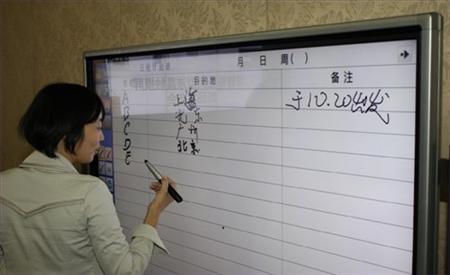 月 日 周( )
目的地 备注
A 上海 于10.20出发
B
C 广州
D 北京
E